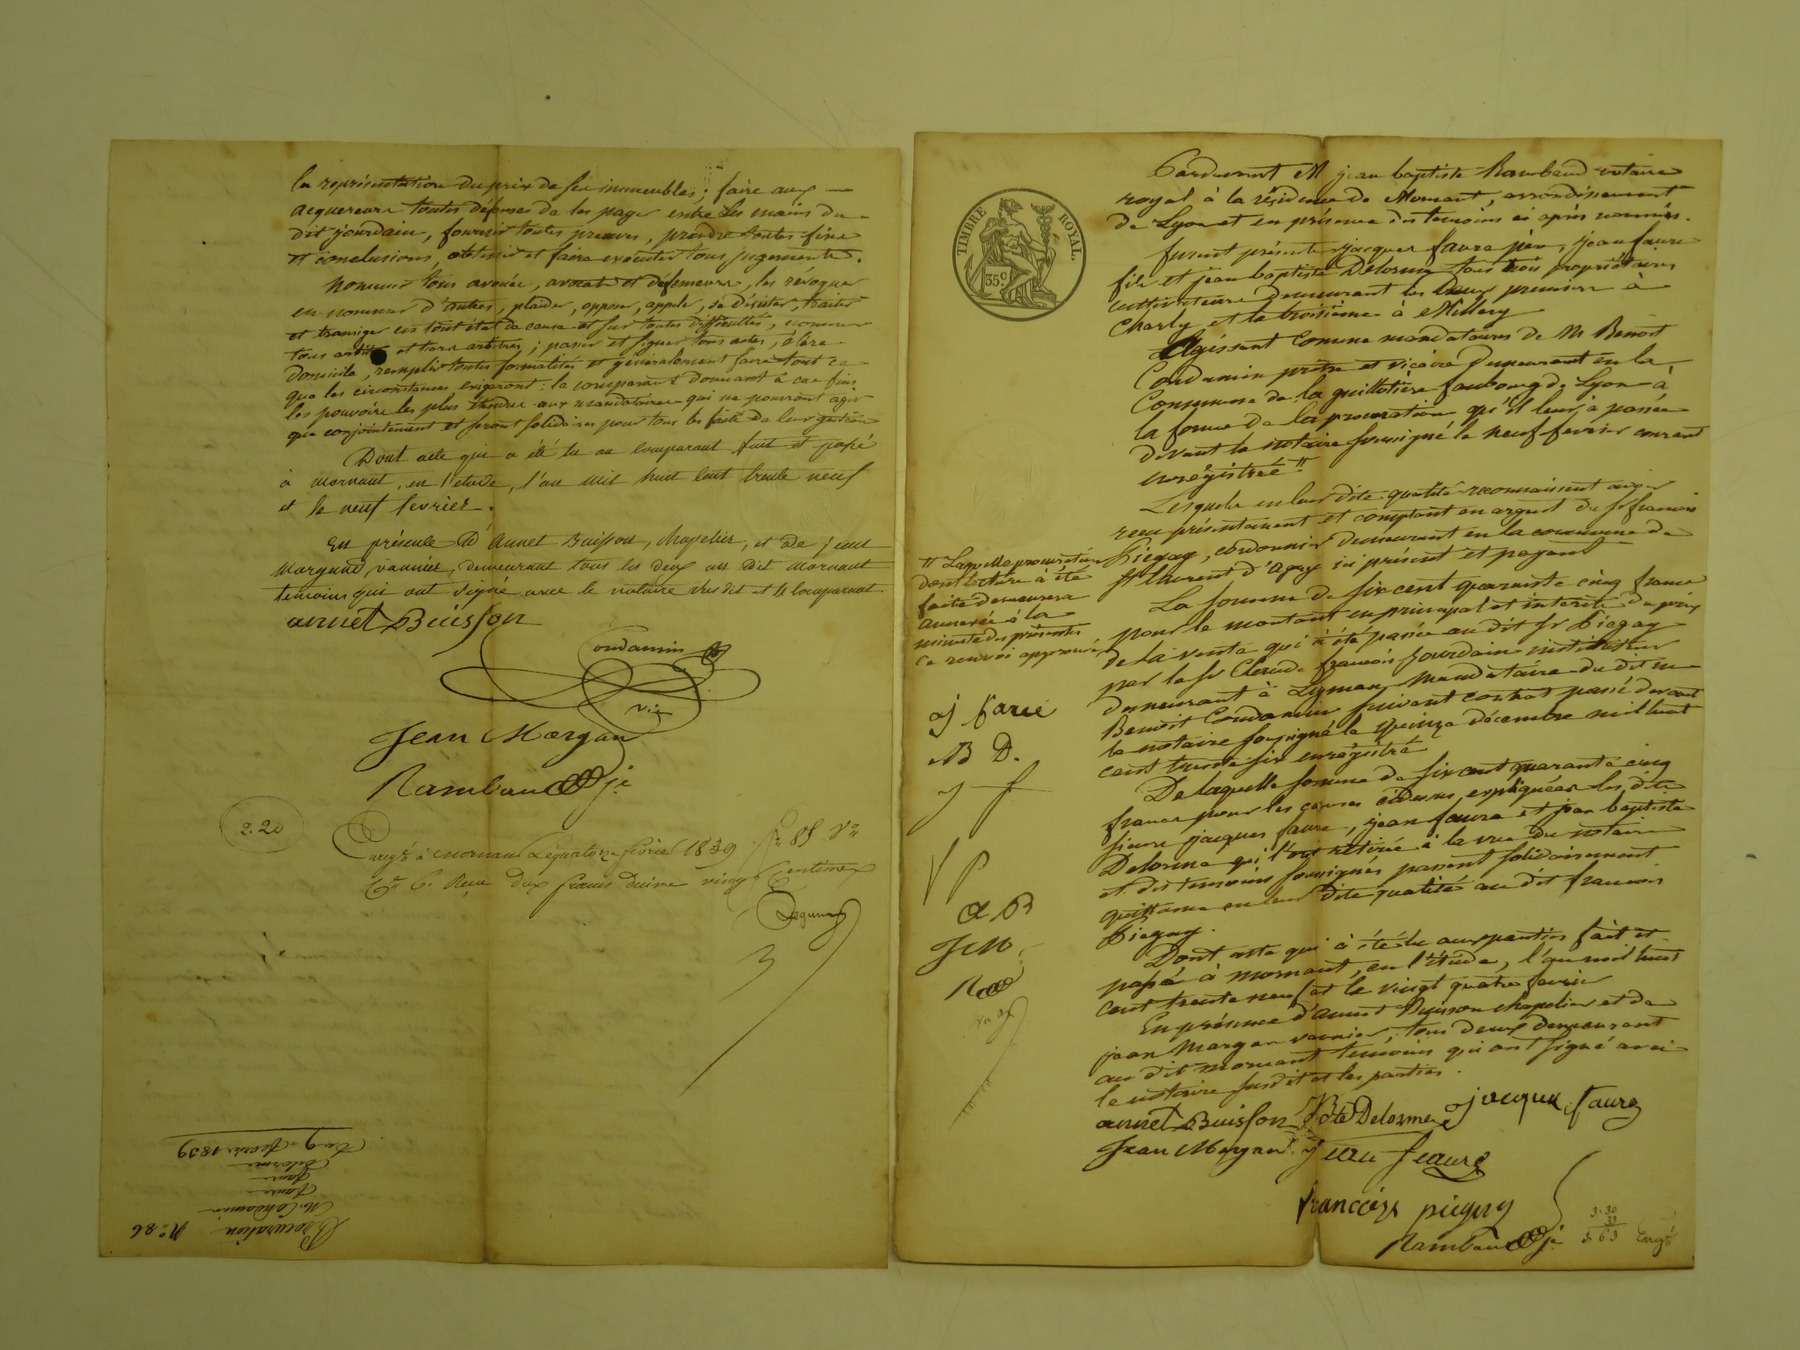 la représentation du prix de ses immeubles; faire aux
acquereurs toutes défenses de les payer entre les mains du
dit jourdain, fournir toutes preuves, prendre toutes fins
et conclusions, obtenir et faire exécuter tous jugements.
Nommer tous avoués, avocats et défenseurs, les révoquer
en nommer d'autres, plaider, opposer, appeler, se désister, traiter
et transiger en tout état de cause et sur toutes difficultés, nommer
tous arbitres et tiers arbitres; passer et signer tous actes, élire
domicile, remplir toutes formalités et généralement faire tout ce
que les circonstances exigeront: le comparant donnant à ces fins
les pouvoirs les plus étendus aux mandataires qui ne pourront agir
que conjointement et seront solidaires pour tous les faits de leur gestion
Dont acte qui a été lu au comparant fait et passé
à mornant, en l'etude, l'an mil huit cent trente neuf
et le neuf fevrier.
En présence d'Annet Buisson, chapelier, et de jean
Morgand, vannier, demeurant tous les deux au dit Mornant
temoins qui ont signé avec le notaire susdit et le comparant
annet Buisson
Condamin
vic
Jean Morgan
Rambaud
2.20
Enregt à Mornant le quatorze février 1839 fo 85 Vo
Co 6. Reçu deux francs decime vingt centimes
Du 9 fevrier 1839
Delorme
faure
faure
M. Condamin
Procuration
No 86
TIMBRE ROYAL.
35 c.
Pardevant M jean baptiste Rambaud notaire
royal à la résidence de Mornant, arrondissement
de Lyon et en présence des temoins ci après nommés.
furent présents jacques faure père, jean faure
fils et jean baptiste Delorme tous trois propriétaires
cultivateurs demeurant les deux premiers à
Charly et le troisième à Millery
Agissant comme mandataires de M. Benoit
Condamin prêtre et vicaire demeurant en la
Commune de la guillotière faubourg de Lyon à
la forme de la procuration qu'il leur à passée
devant le notaire soussigné le neuf fevrier courant
enrégistrée #
Lesquels en leur dite qualité reconnaissent avoir
recu présentement et comptant en argent du sr francois
Piegay, cordonnier demeurant en la commune de
St laurent d'agny ici présent et payant
# Laquelle procuration
dont lecture à été
faite demeurera
annexée à la
minute des présentes
ce renvoi approuvé
La somme de six cent quarante cinq francs
pour le montant en principal et interêts du prix
de la vente qui à été passée au dit sr Piegay
par le sr Claude francois jourdain instituteur
demeurant à Lyman, mandataire du dit sr
Benoit Condamin suivant contrat passé devant
le notaire soussigné le quinze décembre mil huit
cent trente six enrégistré
j fare
B D.
j f
P
a B
J M
De laquelle somme de six cent quarante cinq
francs pour les causes cidessus expliquées les dits
sieurs jacques faure, jean faure et jean baptiste
Delorme qui l'ont retirée à la vue du notaire
et dits temoins soussignés passent solidairement
quittance en leur dite qualité au dit francois
Piegay.
Dont acte qui à été lu aux parties fait et
passé à mornant, en l'étude, l'an mil huit
cent trente neuf et le vingt quatre fevrier
En présence d'annet Buisson chapelier et de
jean Morgan vannier, tous deux demeurant
au dit mornant temoins qui ont signé avec
le notaire susdit et les parties.
annet Buisson JBte Delorme jacque faure
Jean Morgan jean feaure
francois piegay
Rambaud
3.30
33
3.63
Engt